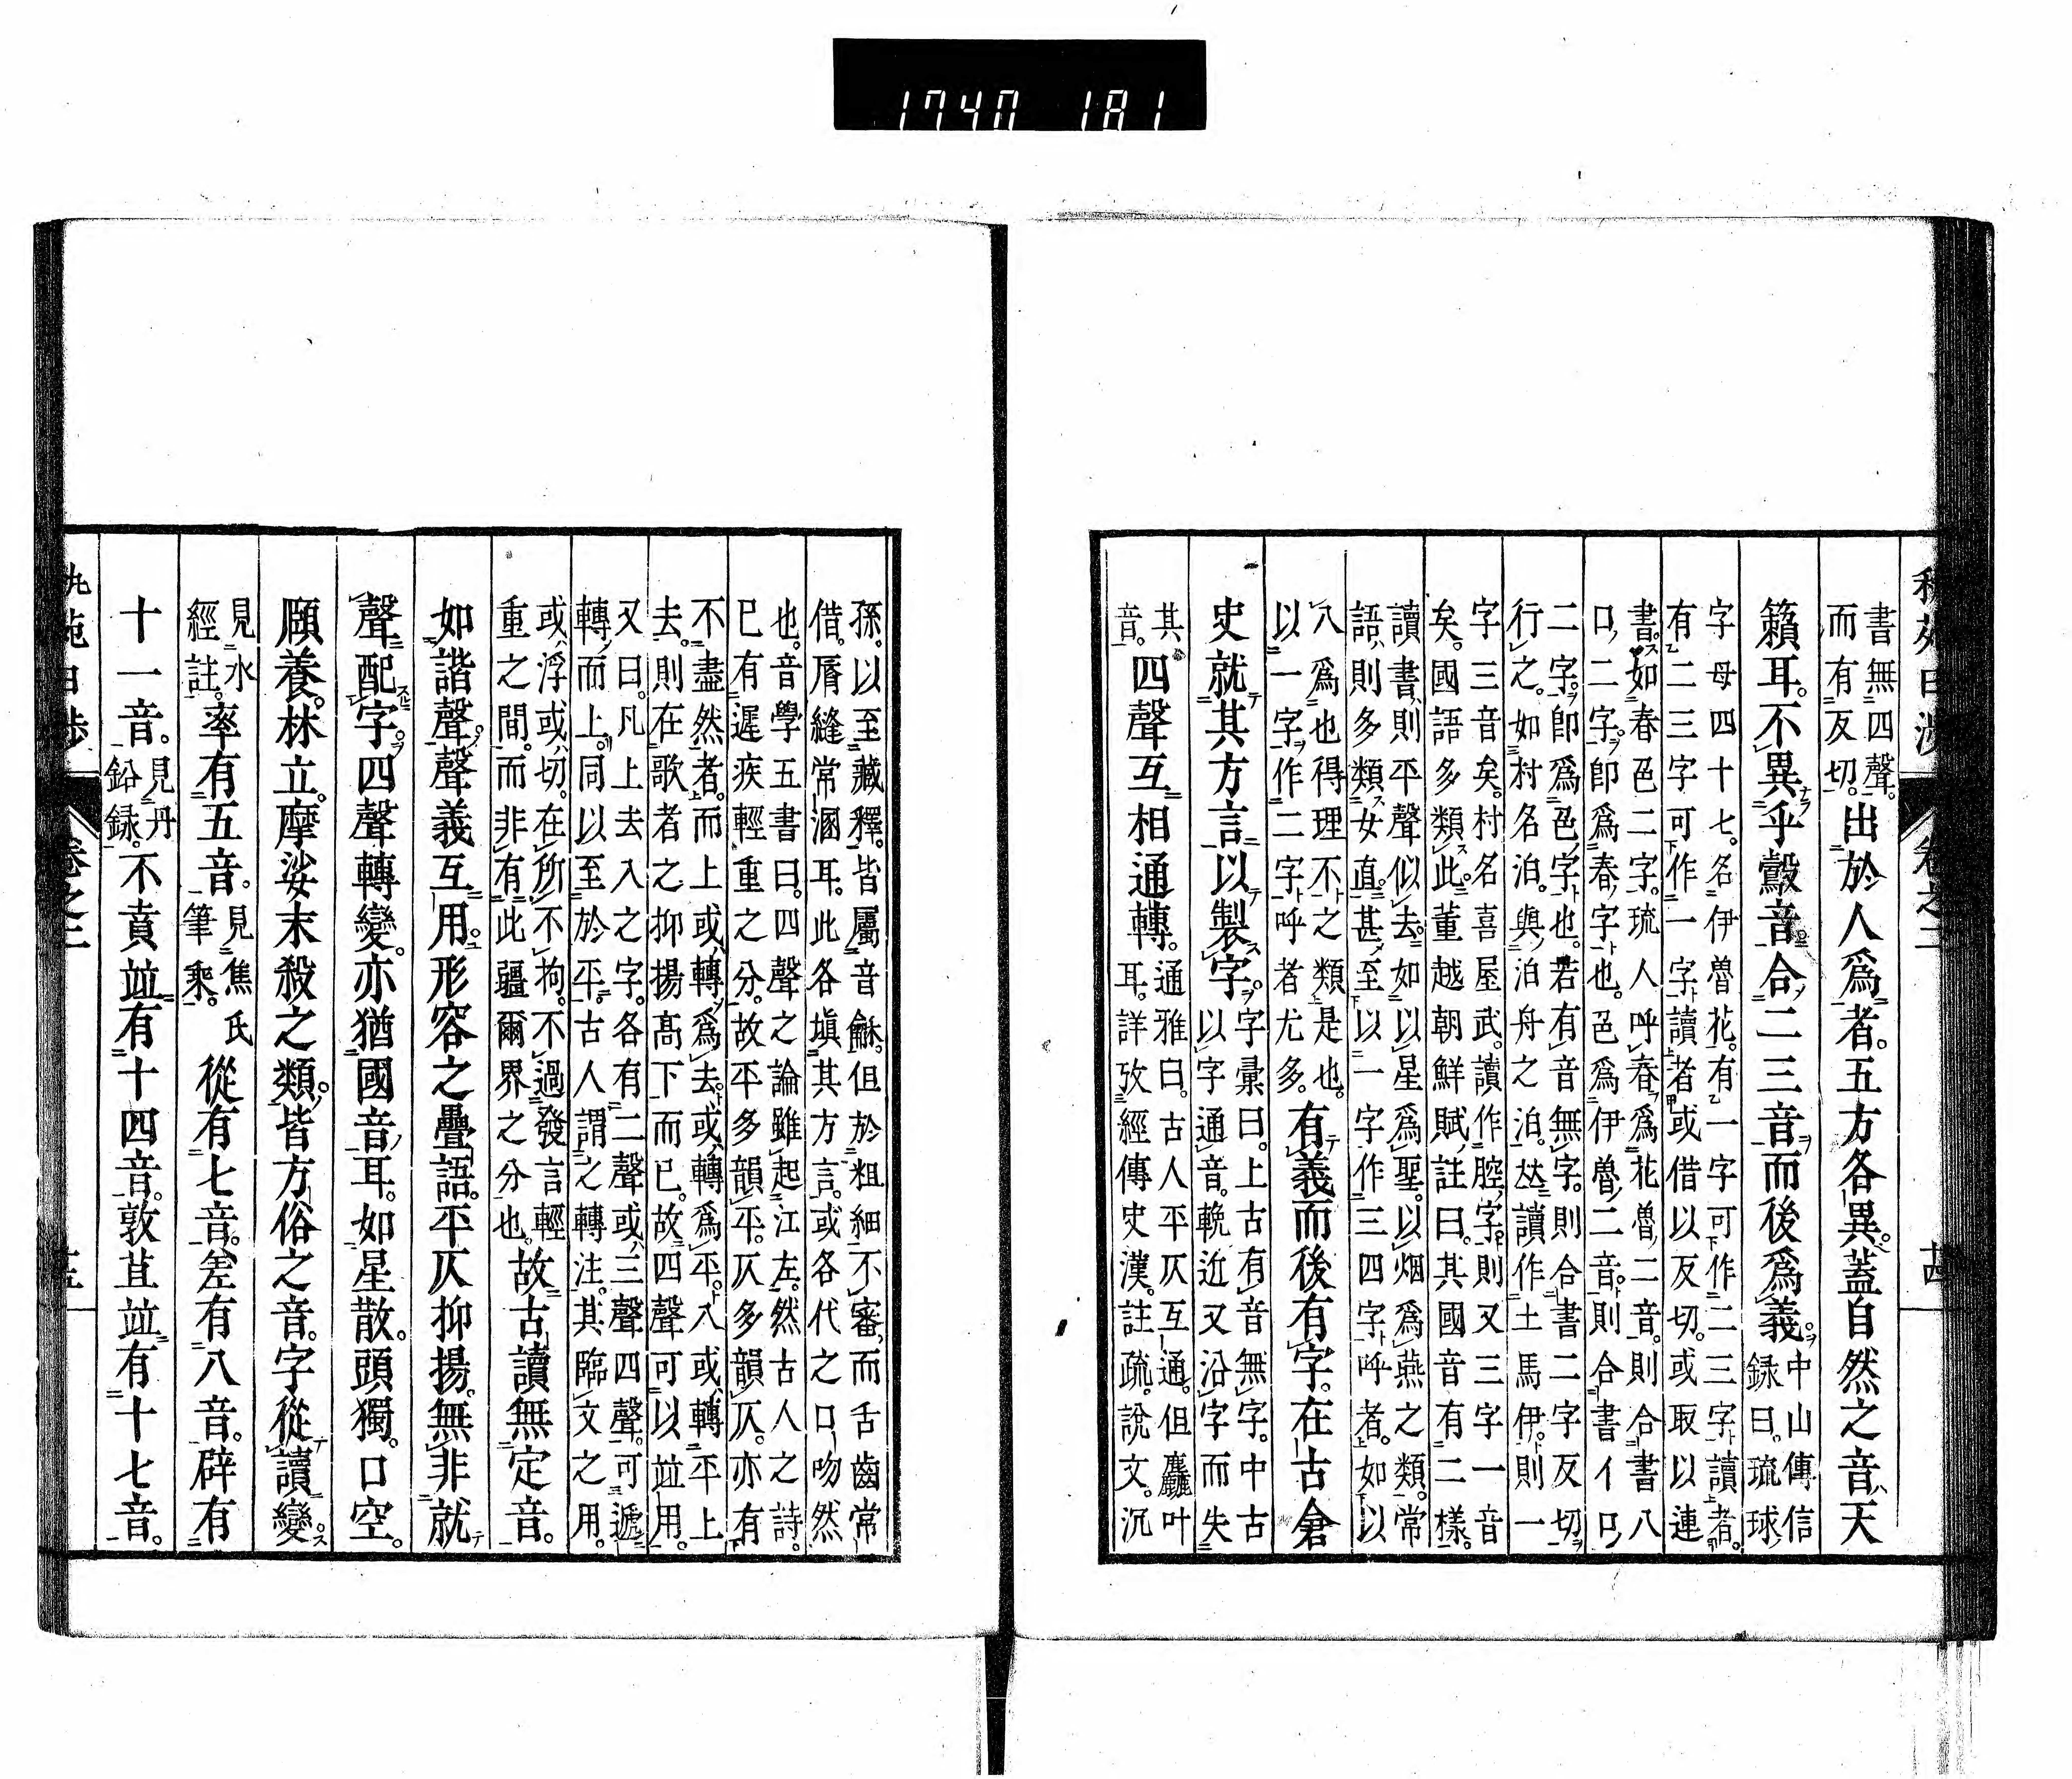 1740 181
書無四聲。
而有反切。
出於人爲者。五方各異。蓋自然之音。天
籟耳。不異乎鷇音。合二三音而後爲義。
中山傳信
録曰。琉球
字母四十七。名伊魯花。有一字可作二三字讀者。
有二三字可作一字讀者。或借以反切。或取以連
書。如春色二字。琉人呼春爲花魯二音。則合書八
口二字。即爲春字也。色爲伊魯二音。則合書イロ
二字。即爲色字也。若有音無字。則合書二字反切
行之。如村名泊。與泊舟之泊。竝讀作土馬伊。則一
字三音矣。村名喜屋武。讀作腔字。則又三字一音
矣。國語多類此。董越朝鮮賦註曰。其國音有二樣。
讀書則平聲似去。如以星爲聖。以烟爲燕之類。常
語則多類女直。甚至以一字作三四字呼者。如以
八爲也得理不之類是也。
以一字作二字呼者尤多。
有義而後有字。在古倉
史就其方言以製字。
字彙曰。上古有音無字。中古
以字通音。輓近又沿字而失
其
音。
四聲互相通轉。
通雅曰。古人平仄互通。但麤叶
耳。詳攷經傳史漢。註疏。說文。沉
孫。以至藏釋。皆屬音龢。但於粗細不審。而舌齒常
借。脣縫常溷耳。此各塡其方言。或各代之口吻然
也。音學五書曰。四聲之論雖起江左。然古人之詩。
已有遲疾輕重之分。故平多韻平。仄多韻仄。亦有
不盡然者。而上或轉爲去。去或轉爲平。入或轉平上
去。則在歌者之抑揚高下而已。故四聲可以竝用。
又曰。凡上去入之字。各有二聲或三聲四聲。可遞
轉而上。同以至於平。古人謂之轉注。其臨文之用。
或浮或切。在所不拘。不過發言輕
重之間。而非有此疆爾界之分也。
故古讀無定音。
如諧聲。聲義互用。形容之疊語。平仄抑揚。無非就
聲配字。四聲轉變。亦猶國音耳。如星散。頭獨。口空。
頤養。林立。摩娑末殺之類。皆方俗之音。字從讀變
見水
經註。
率有五音。
見焦氏
筆乘。
從有七音。差有八音。辟有
十一音。
見丹
鉛録。
不賁竝有十四音。敦苴竝有十七音。